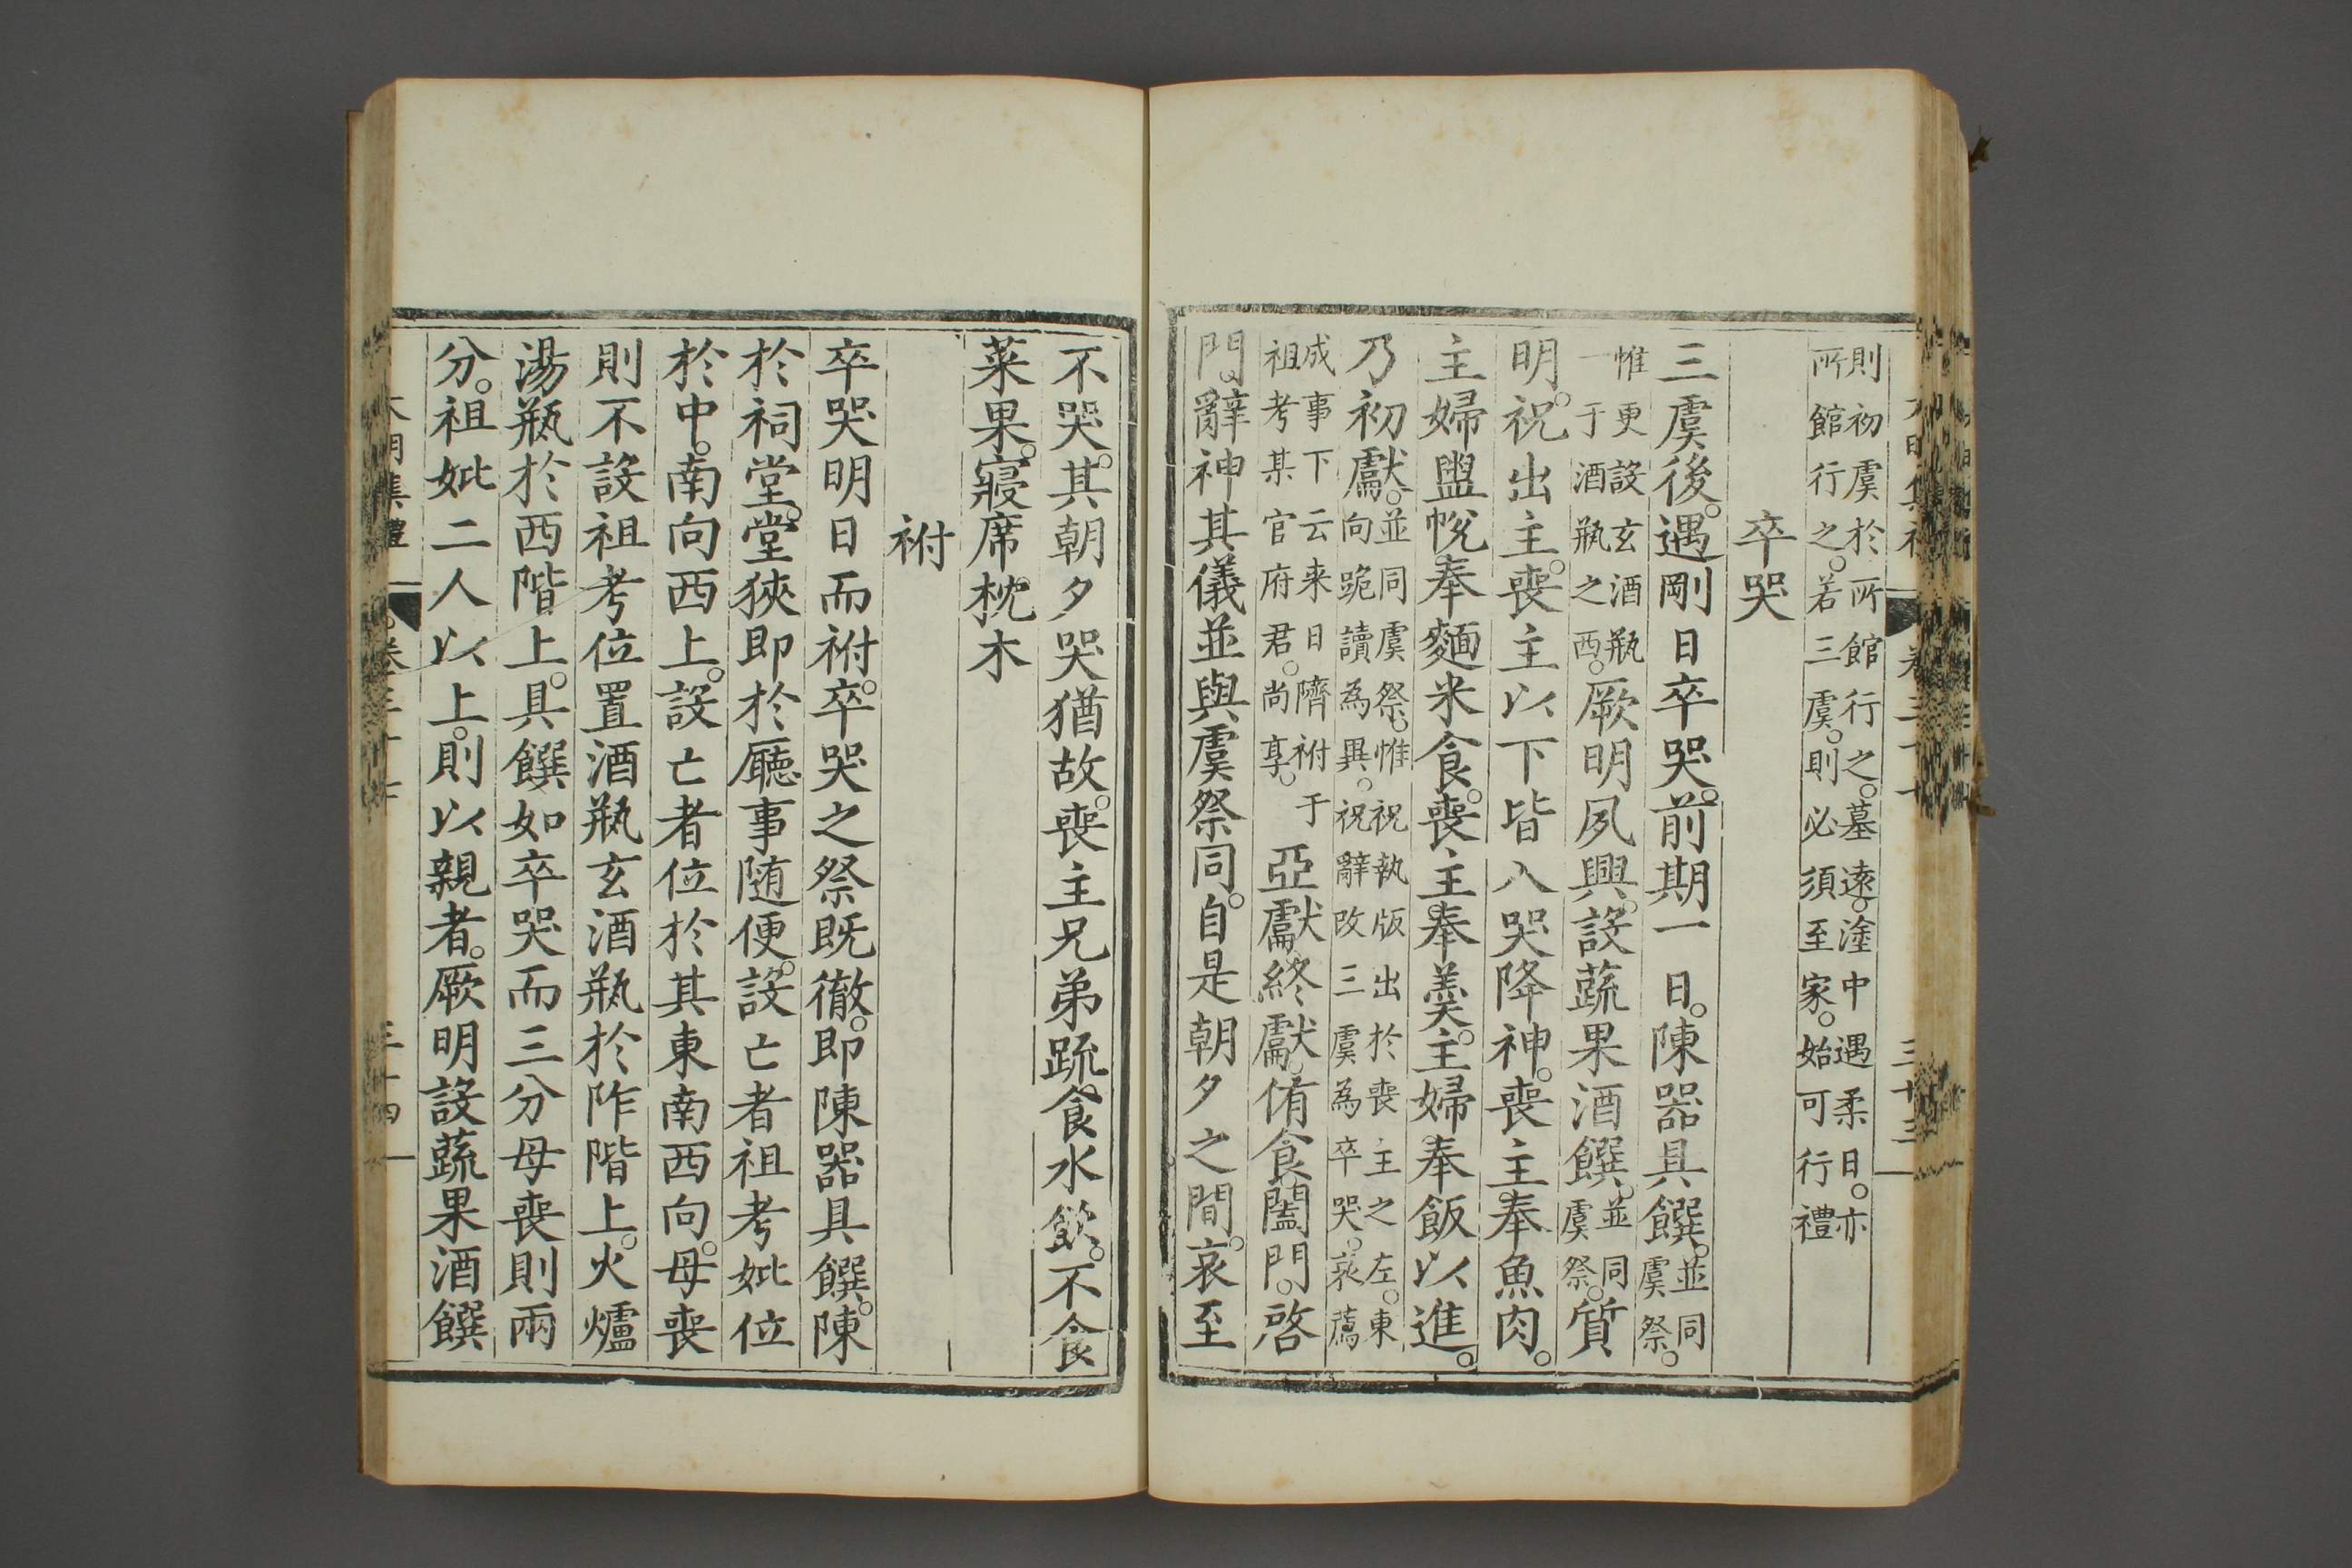 則初虞於所館行之。墓遠。塗中遇柔日。亦
所館行之。若三虞。則必須至家。始可行禮
卒哭
三虞後。遇剛日卒哭。前期一日。陳器具饌。並同虞祭。
惟更設玄酒瓶一于酒瓶之西。厥明夙興。設蔬果酒饌。並同虞祭。質
明。祝出主。喪主以下皆入哭降神。喪主奉魚肉。
主婦盥帨奉麵米食。喪主奉羹。主婦奉飯以進。
乃初獻。並同虞祭。惟祝執版出於喪主之左。東向跪讀為異。祝辭改三虞為卒哭。哀薦
成事下云来日隮祔于祖考某官府君。尚享。亞獻終獻。侑食闔門。啓
門辭神其儀並與虞祭同。自是朝夕之間。哀至
不哭。其朝夕哭猶故。喪主兄弟䟽食水飲。不食
菜果。寢席枕木
祔
卒哭明日而祔。卒哭之祭既徹。即陳器具饌。陳
於祠堂。堂狹即於廳事随便。設亡者祖考妣位
於中。南向西上。設亡者位於其東南西向。母喪
則不設祖考位置酒瓶玄酒瓶於阼階上。火爐
湯瓶於西階上。具饌如卒哭而三分母喪則兩
分。祖妣二人以上。則以親者。厥明設蔬果酒饌
大明集禮 卷三十七 三十四